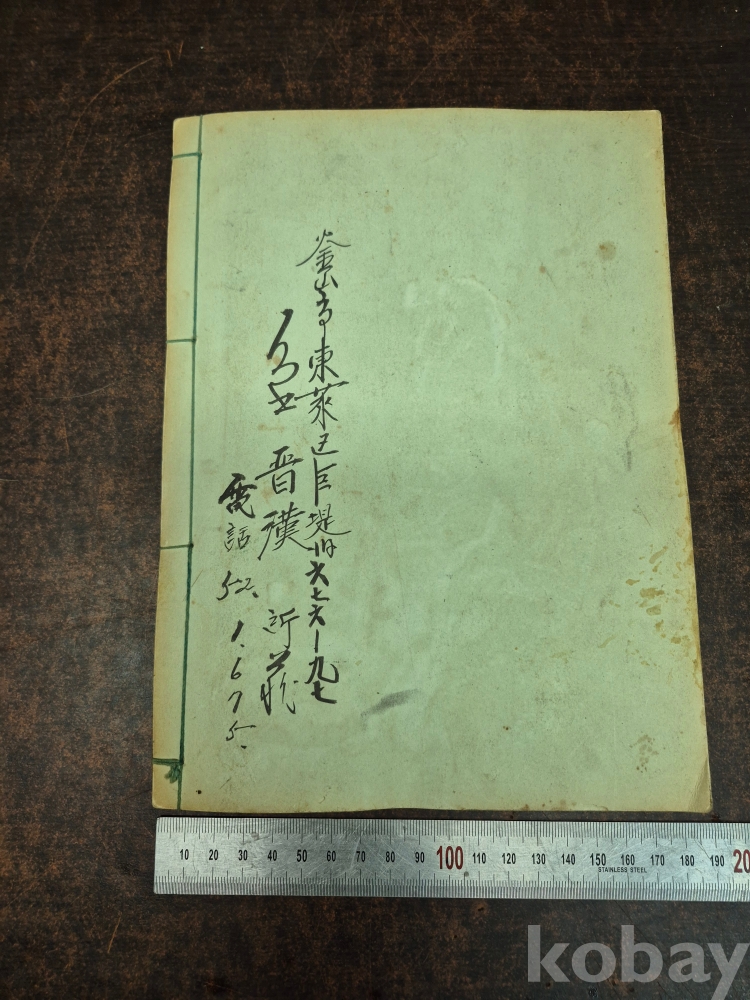 釜山市東萊区巨堤洞六七六ー九七
晋漢
電話 52. 1.675.
10 20 30 40 50 60 70 80 90 100 110 120 130 140 150 160 170 180 190 20
STAINLESS STEEL
kobay